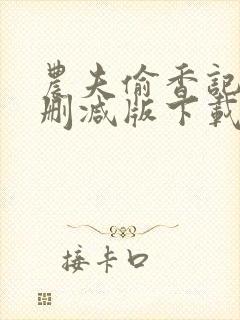 農夫偷香記
刪減版下載
接卡口